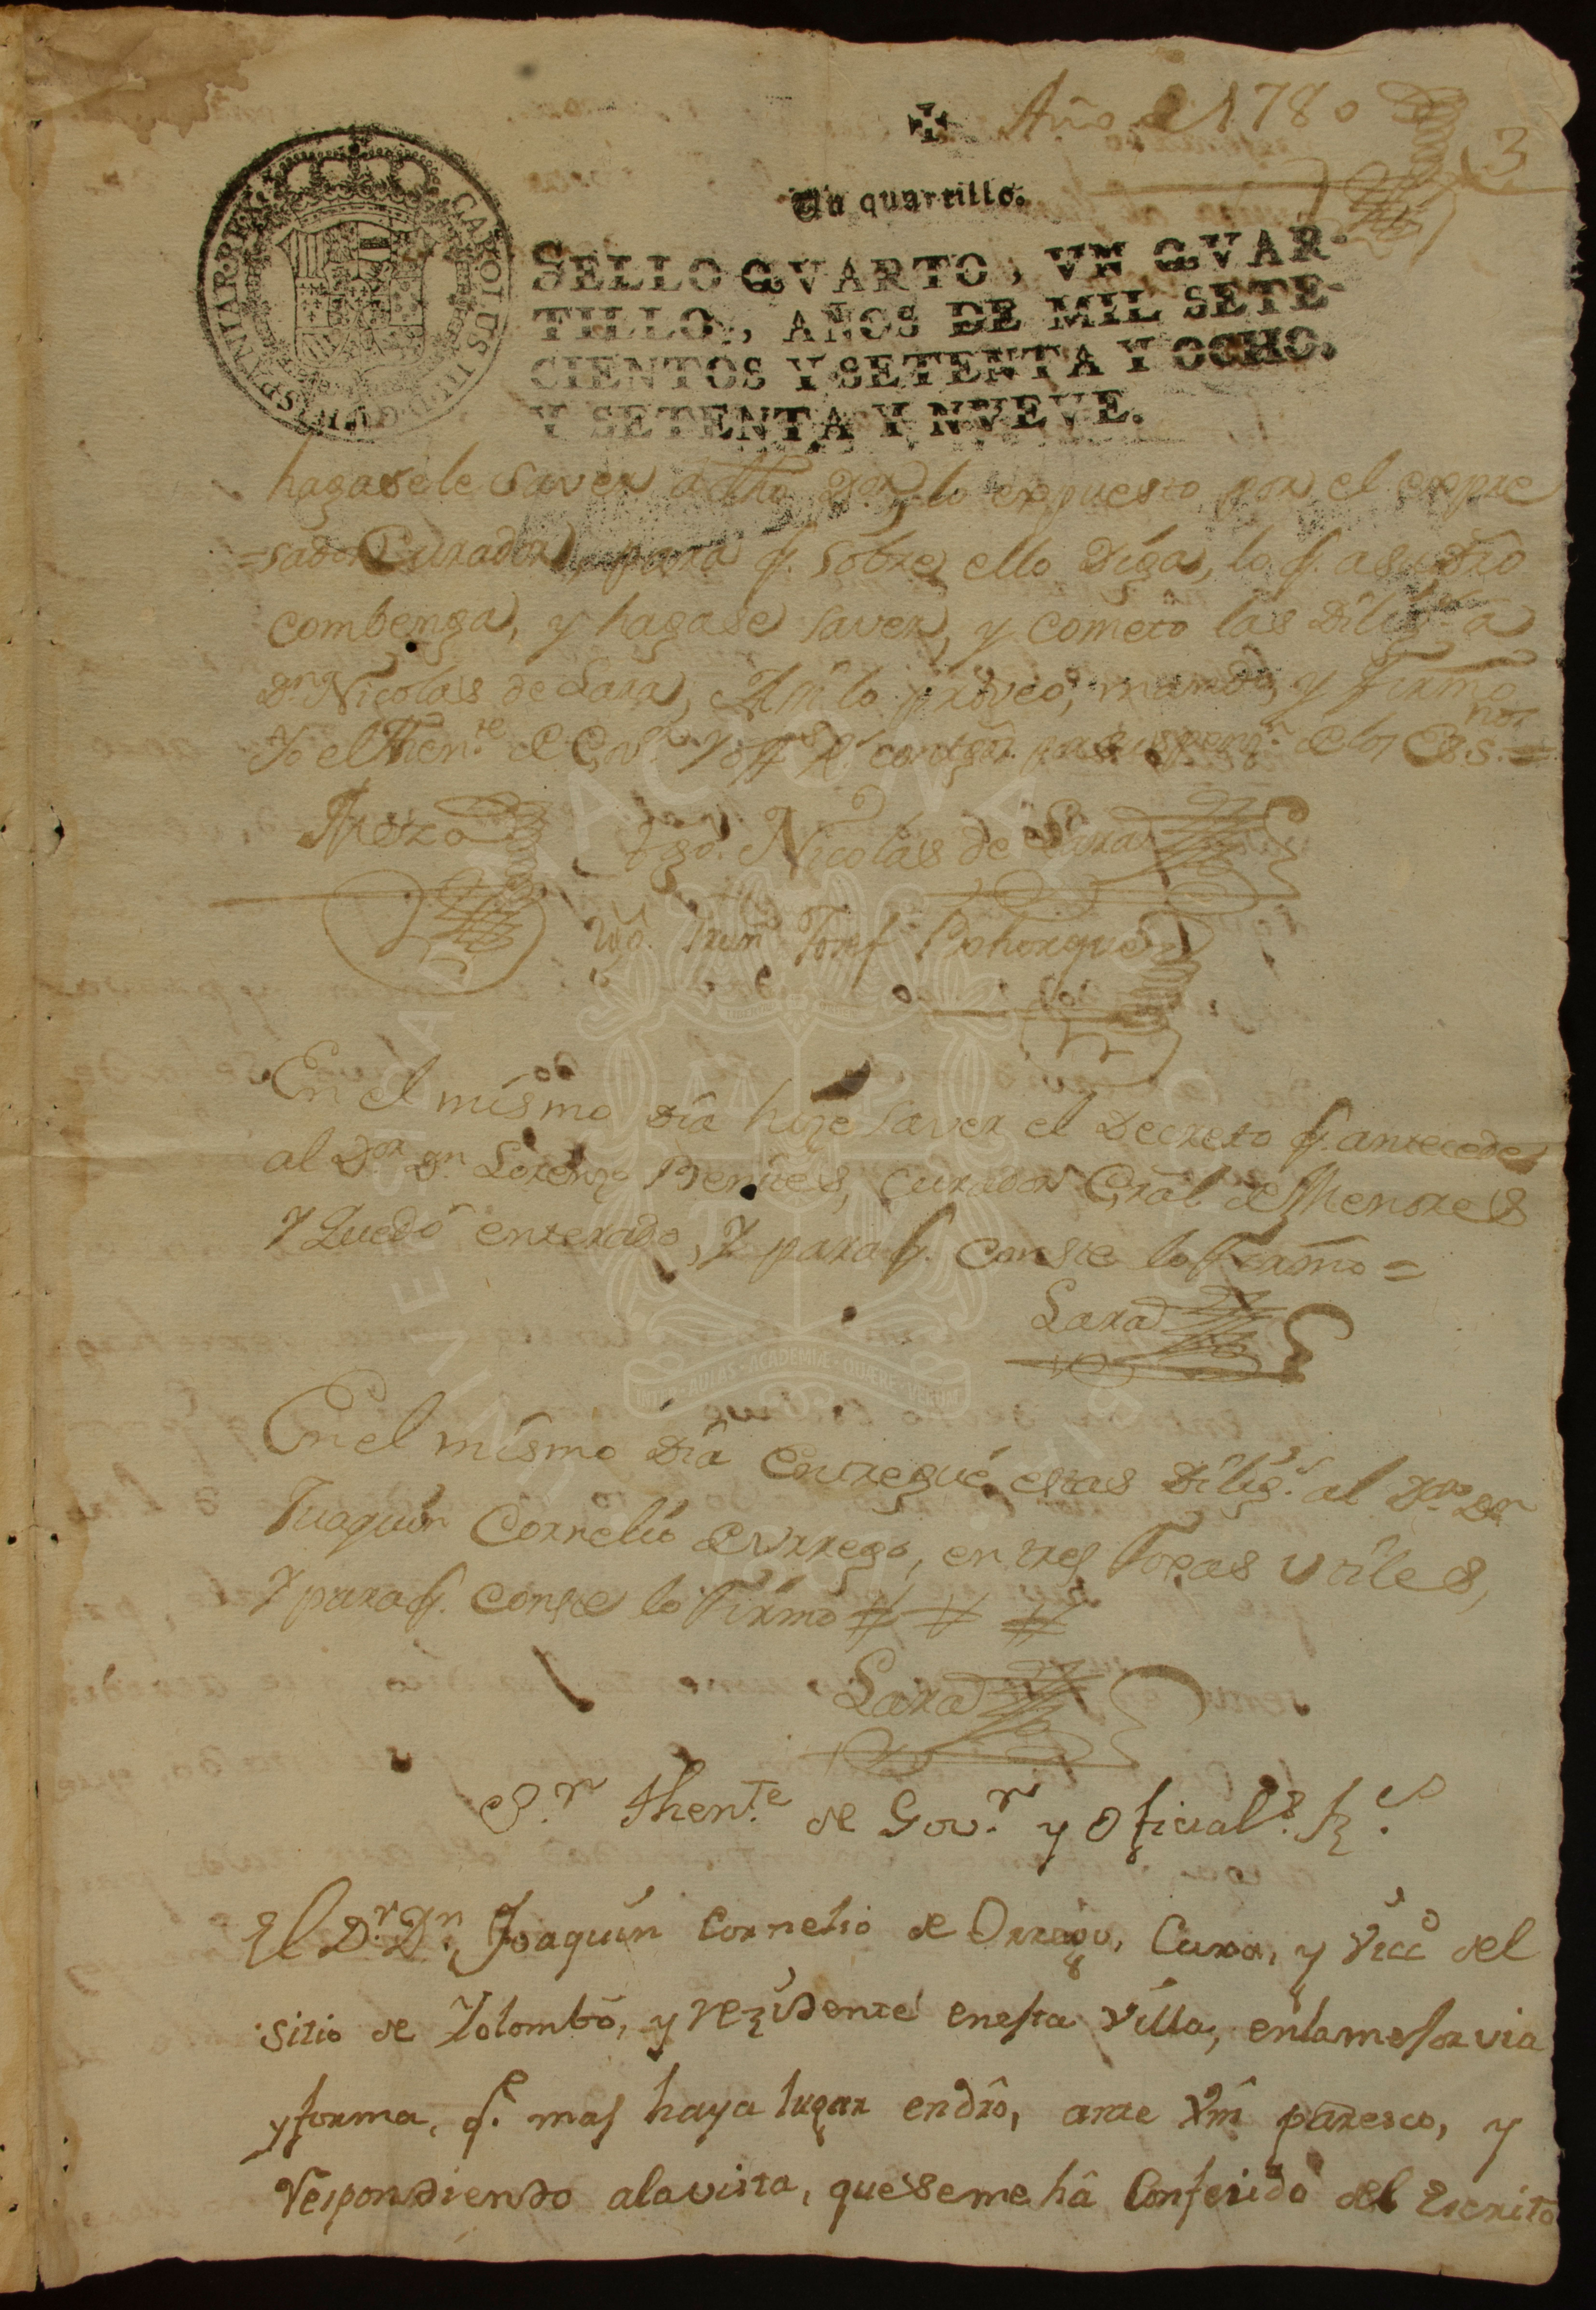 Año de 1780
3
Un quartillo.
SELLO QVARTO, VN QVAR-
TILLO, AÑOS DE MIL SETE-
CIENTOS Y SETENTA Y OCHO.
Y SETENTA Y NVEVE.
CAROLUS III D G HISPANIAR REX
hagasele saver a dho Dor. lo expuesto por el expre
=sado Curador, para q. sobre ello Diga, lo q. a su dro
combenga, y hagase saver, y cometo las Dilig.s a
Dn. Nicolas de Lara, Asi lo proveo, mando, y Firmo
Yo el Then.te de Gov.r y
Tgo. Nicolas de Lara
Tgo. Juan Josef Bohorques
En el mismo Dia hize saver el Decreto q. antecede
al Dor. Dn. Lorenzo Benites, Curador Gral de Menores
Y Quedó enterado, Y para q. conste lo Firmo =
Lara
En el mismo Dia entregué estas Dilig.s al Dor. Dn
Juaquin Cornelio de Urrego, en tres Foxas utiles,
Y para q. conste lo Firmo
Lara
S.r Then.te de Gov.r y Oficial.s R.s
El D.r D.n Joaquin Cornelio de Orrego, Cura, y Vicº del
sitio de Yolombó, y rezidente en esta Villa, en la mejor via
y forma, q.e mas haya lugar en dro, ante Vm paresco, y
Respondiendo a la vista, que se me há conferido del Escrito
INTER · AULAS · ACADEMIÆ · QUÆRE · VERUM